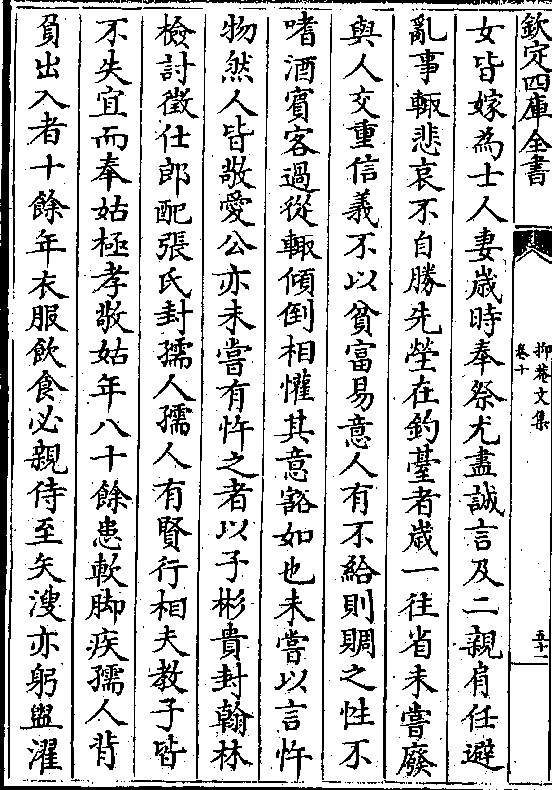 欽定四庫全書
抑菴文集
卷十
五十一
女皆嫁為士人妻歲時奉祭尤盡誠言及二親肓任避
亂事輙悲哀不自勝先塋在釣臺者歲一往省未嘗廢
與人交重信義不以貧富易意人有不給則賙之性不
嗜酒賓客過從輙傾倒相懽其意豁如也未嘗以言忤
物然人皆敬愛公亦未嘗有忤之者以子彬貴封翰林
檢討徵仕郎配張氏封孺人孺人有賢行相夫教子皆
不失宜而奉姑極孝敬姑年八十餘患軟脚疾孺人背
負出入者十餘年衣服飲食必親侍至矢溲亦躬盥濯